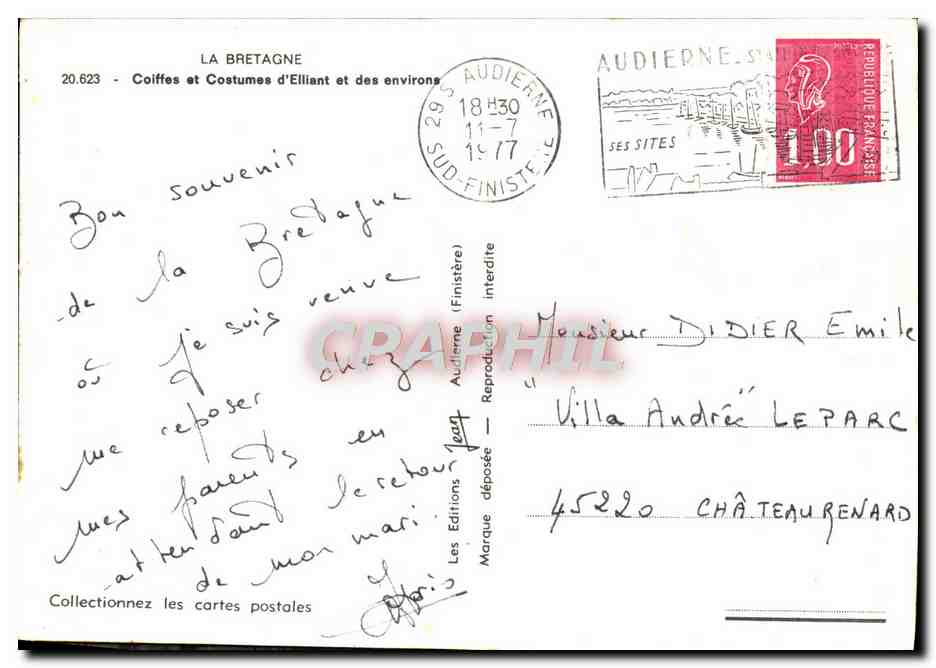 LA BRETAGNE
20.623 - Coiffes et Costumes d'Elliant et des environs
29 S AUDIERNE
18H30
11-7
1977
SUD-FINISTERE
AUDIERNE
SES SITES
POSTES
REPUBLIQUE FRANÇAISE
1,00
Bon souvenir
de la Bretagne
où je suis venue
me reposer chez
mes parents en
attendant le retour
de mon mari.
Collectionnez les cartes postales
Les Editions Jean Audierne (Finistère)
Marque déposée — Reproduction interdite
CRAPHIL
Monsieur DIDIER Emile
"Villa Andrée" LEPARC
45220 CHÂTEAURENARD